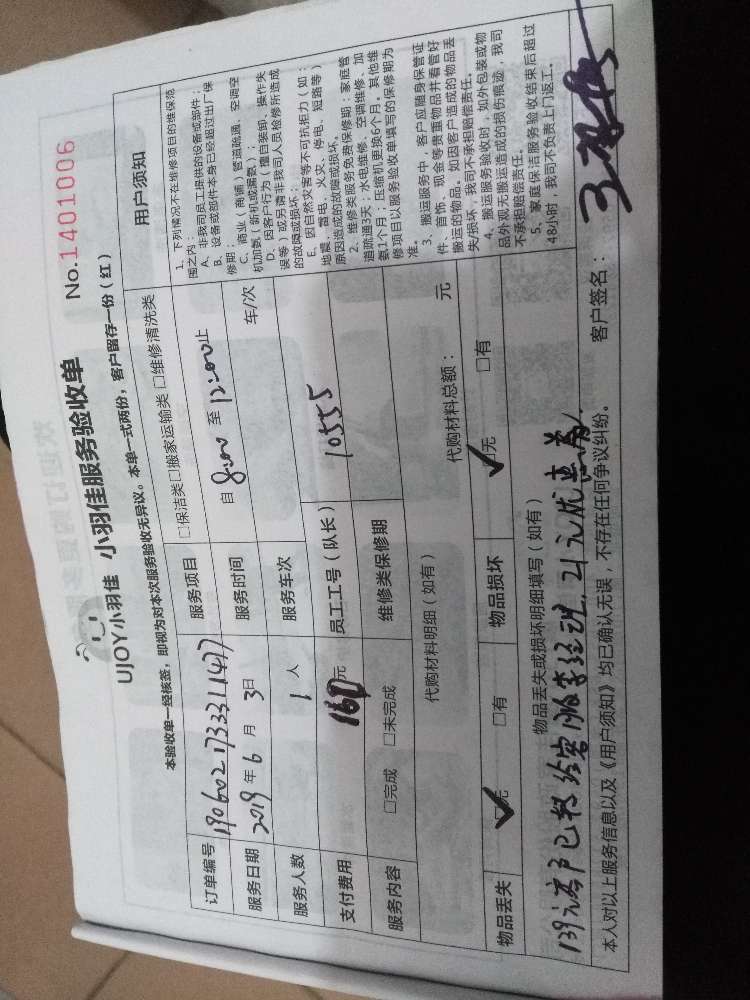 UJOY小羽佳 小羽佳服务验收单 No.1401006
本验收单一经核签，即视为对本次服务验收无异议。本单一式两份，客户留存一份（红）
订单编号 190602173331147 服务项目 □保洁类□搬家运输类 □维修清洗类
服务日期 2019年 6 月 3日 服务时间 自 8:00 至 12:00止
服务人数 1 人 服务车次 车/次
支付费用 160元 员工工号（队长） 10555
服务内容 □完成 □未完成 维修类保修期
代购材料明细（如有） 代购材料总额： 元
物品丢失 ☑无 □有 物品损坏 ☑无 □有
物品丢失或损坏明细填写（如有）
139元客户已转给客服李经理，21元优惠券
本人对以上服务信息以及《用户须知》均已确认无误，不存在任何争议纠纷。 客户签名：
用户须知
1、下列情况不在维修项目的维保范
围之内：
A、非我司员工提供的设备或部件；
B、设备或部件本身已经超过出厂保
修期；
C、商业（商铺）管道疏通、空调空
机加氨（新机或漏氨）；
D、因客户行为（擅自装卸、操作失
误等）或另请非我司人员检修所造成
的故障或损坏；
E、因自然灾害等不可抗拒力（如：
地震、雷电、火灾、停电、短路等）
原因造成的故障或损坏。
2、维修类服务免费保修期：家庭管
道疏通3天；水电维修、空调维修、加
氨1个月；压缩机更换6个月，其他维
修项目以服务验收单填写的保修期为
准。
3、搬运服务中，客户应随身保管证
件、首饰、现金等贵重物品并看管好
搬运的物品。如因客户造成的物品丢
失/损坏，我司不承担赔偿责任。
4、搬运服务验收时，如外包装或物
品外观无搬运造成的损伤痕迹，我司
不承担赔偿责任。
5、家庭保洁服务验收结束后超过
48小时，我司不负责上门返工。